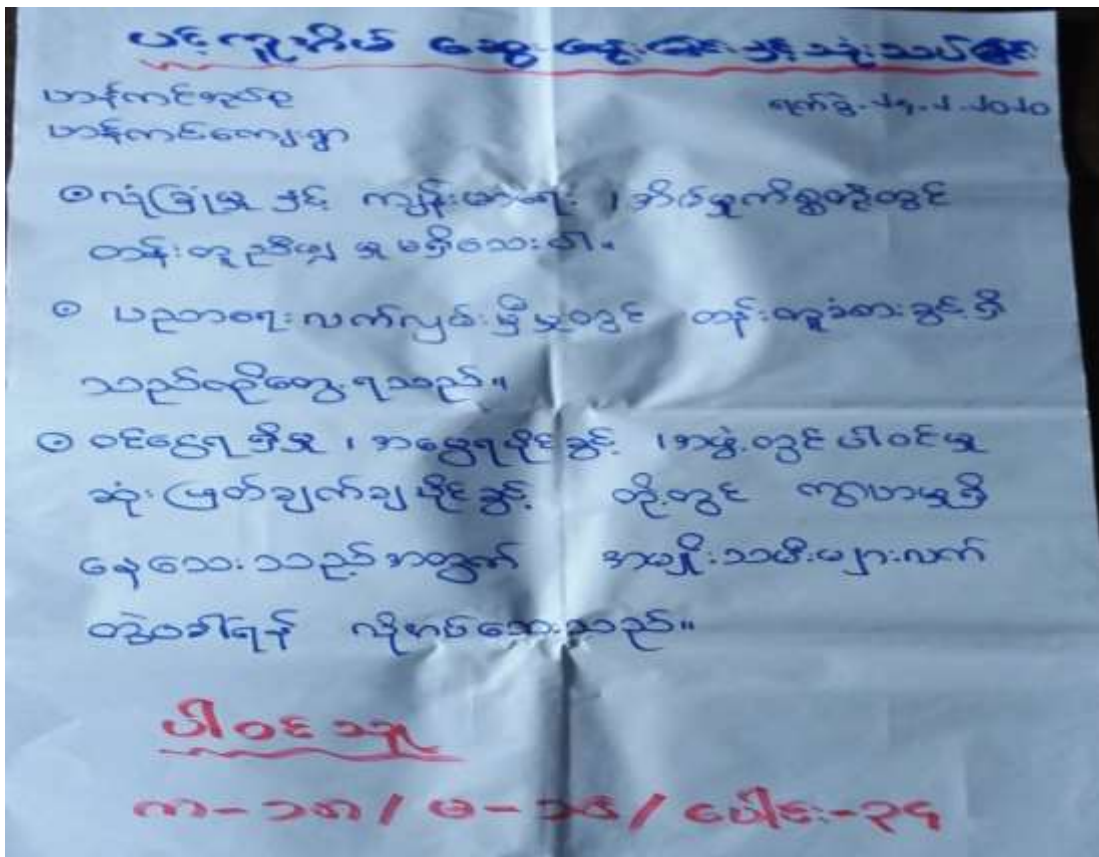 ပင့်ကူအိမ် ဆွေးနွေးခြင်းနှင့်သုံးသပ်ခြင်း
ဟန်ကင်အုပ်စု
ရက်စွဲ-၂၄.၂.၂၀၂၀
ဟန်ကင်ကျေးရွာ
လုံခြုံမှု နှင့် ကျန်းမာရေး ၊ အိမ်မှုကိစ္စတို့တွင်
တန်းတူညီမျှ မှု မရှိသေးပါ။
ပညာရေးလက်လှမ်းမှီမှုတွင် တန်းတူခံစားခွင့်ရှိ
သည်ကိုတွေ့ရသည်။
ဝင်ငွေရရှိမှု ၊ အမွေရပိုင်ခွင့် ၊အဖွဲ့တွင်ပါဝင်မှု
ဆုံးဖြတ်ချက်ချပိုင်ခွင့် တို့တွင် ကွာဟမှုရှိ
နေသေးသည့်အတွက် အမျိုးသမီးများလက်
တွဲခေါ်ရန် လိုအပ်သေးသည်။
ပါဝင်သူ
က-၁၈/မ-၁၆/ပေါင်း-၃၄